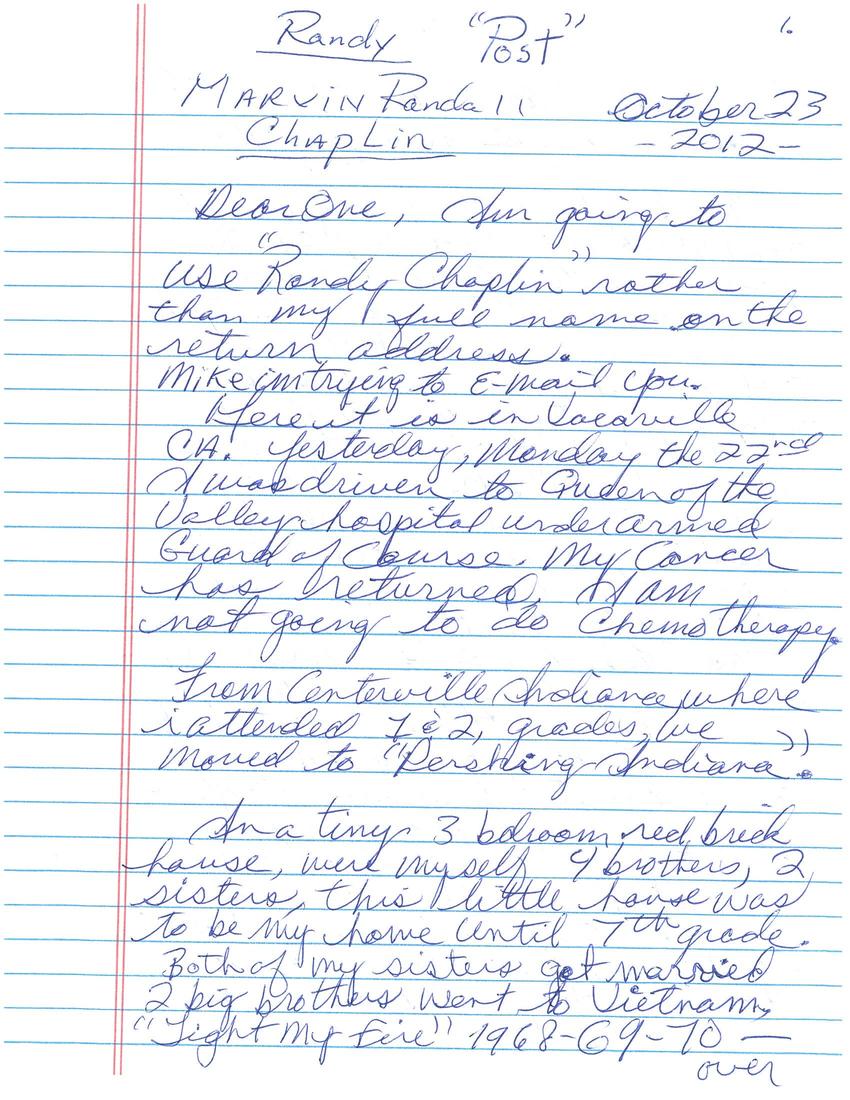 Randy "Post" 1.
MARVIN Randall October 23
Chaplin -2012-
Dear One, Am going to
use "Randy Chaplin" rather
than my full name on the
return address.
Mike im trying to E-mail you.
Here it is in Vacaville
CA. Yesterday, Monday the 22nd
I was driven to Queen of the
Valley hospital under armed
Guard of Course. My Cancer
has returned. I am
not going to do Chemotherapy.
From Centerville Indiana, where
i attended 1 & 2, grades, we
moved to "Pershing Indiana".
In a tiny 3 bdroom red brick
house, were myself 4 brothers, 2
sisters, this little house was
to be my home until 7th grade.
Both of my sisters got married
2 big brothers went to Vietnam,
"Light My Fire" 1968-69-70 —
over